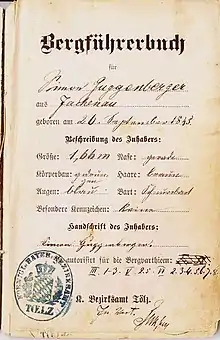 Bergführerbuch
für
Simon Guggenberger
aus Jachenau
geboren am 26 September 1845.
Beschreibung des Inhabers:
Größe: 1,66m Nase: gerade
Körperbau: Haare: braun
Augen: blau Bart: Schnurbart
Besondere Kennzeichen: Keine
Handschrift des Inhabers:
Simon Guggenberger
autorisiert für die Bergpartieen:
III. 1-3. V 25. II 2.3.4.5.6.7.8.
K. Bezirksamt Tölz.
TOELZ